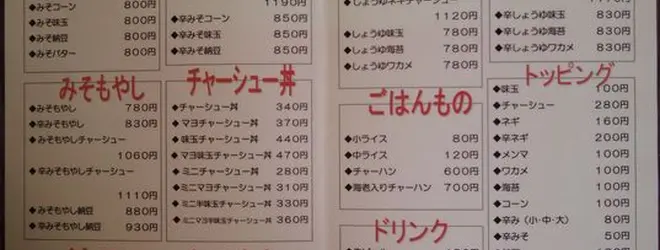 ◆みそコーン 800円
◆みそ味玉 800円
◆みそ納豆 800円
◆みそバター 800円
みそもやし
◆みそもやし 780円
◆辛みそもやし 830円
◆みそもやしチャーシュー
1060円
◆辛みそもやしチャーシュー
1110円
◆みそもやし納豆 880円
◆辛みそもやし納豆 930円
1190円
◆辛みそコーン 850円
◆辛みそ味玉 850円
◆辛みそ納豆 850円
チャーシュー丼
◆チャーシュー丼 340円
◆マヨチャーシュー丼 370円
◆味玉チャーシュー丼 440円
◆マヨ味玉チャーシュー丼 470円
◆ミニチャーシュー丼 280円
◆ミニマヨチャーシュー丼 310円
◆ミニ半味玉チャーシュー丼 330円
◆ミニマヨ半味玉チャーシュー丼 360円
◆しょうゆネギチャーシュー
1120円
◆しょうゆ味玉 780円
◆しょうゆ海苔 780円
◆しょうゆワカメ 780円
ごはんもの
◆小ライス 80円
◆中ライス 120円
◆チャーハン 600円
◆海老入りチャーハン 700円
ドリンク
◆辛しょうゆ味玉 830円
◆辛しょうゆ海苔 830円
◆辛しょうゆワカメ 830円
トッピング
◆味玉 100円
◆チャーシュー 280円
◆ネギ 160円
◆辛ネギ 200円
◆メンマ 100円
◆ワカメ 100円
◆海苔 100円
◆コーン 100円
◆辛み(小・中・大) 80円
◆辛みそ 50円